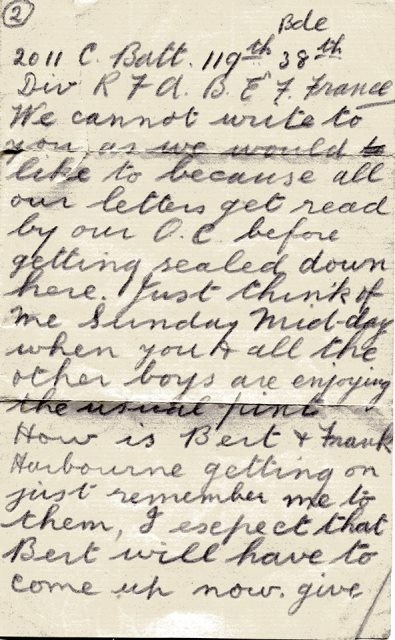 2
Bde
2011 C. Batt. 119th 38th
Div R F A. B. E F. France
We cannot write to
you, as we would to
like to because all
our letters get read
by our O.C. before
getting sealed down
here. Just think of
me Sunday Mid-day
when you & all the
other boys are enjoying
the usual pint
How is Bert & Frank
Harbourne getting on
just remember me to
them, I esepect that
Bert will have to
come up now. give